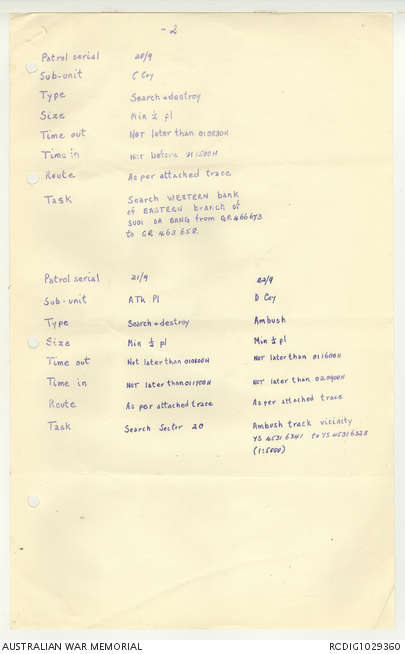 - 2
Patrol serial 20/9
Sub-unit C Coy
Type Search + destroy
Size Min ½ pl
Time out Not later than 010830H
Time in Not before 011500H
Route As per attached trace
Task Search WESTERN bank
of EASTERN branch of
SUOI DA BANG from GR 466673
to GR 463 658.
Patrol serial 21/9 22/9
Sub-unit ATk Pl D Coy
Type Search + destroy Ambush
Size Min ½ pl Min ½ pl
Time out Not later than 010800H Not later than 011600H
Time in Not later than 011700H Not later than 020900H
Route As per attached trace As per attached trace
Task Search Sector 20 Ambush track vicinity
YS 4531 6341 to YS
(1:5000)
AUSTRALIAN WAR MEMORIAL RCDIG1029360